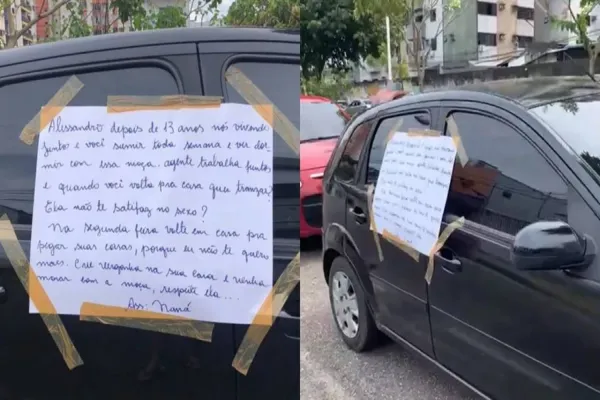 Alissandro depois de 13 anos nós vivendo
junto e você sumir toda semana e ver dor
mir com essa moça. agente trabalha juntos
e quando você volta pra casa quer transar?
Ela não te satifaz no sexo?
Na segunda feira volte em casa pra
pegar suas coisas, porque eu não te quero
mais. Crie vergonha na sua cara e venha
morar com a moça, respeite ela...
Ass: Naná